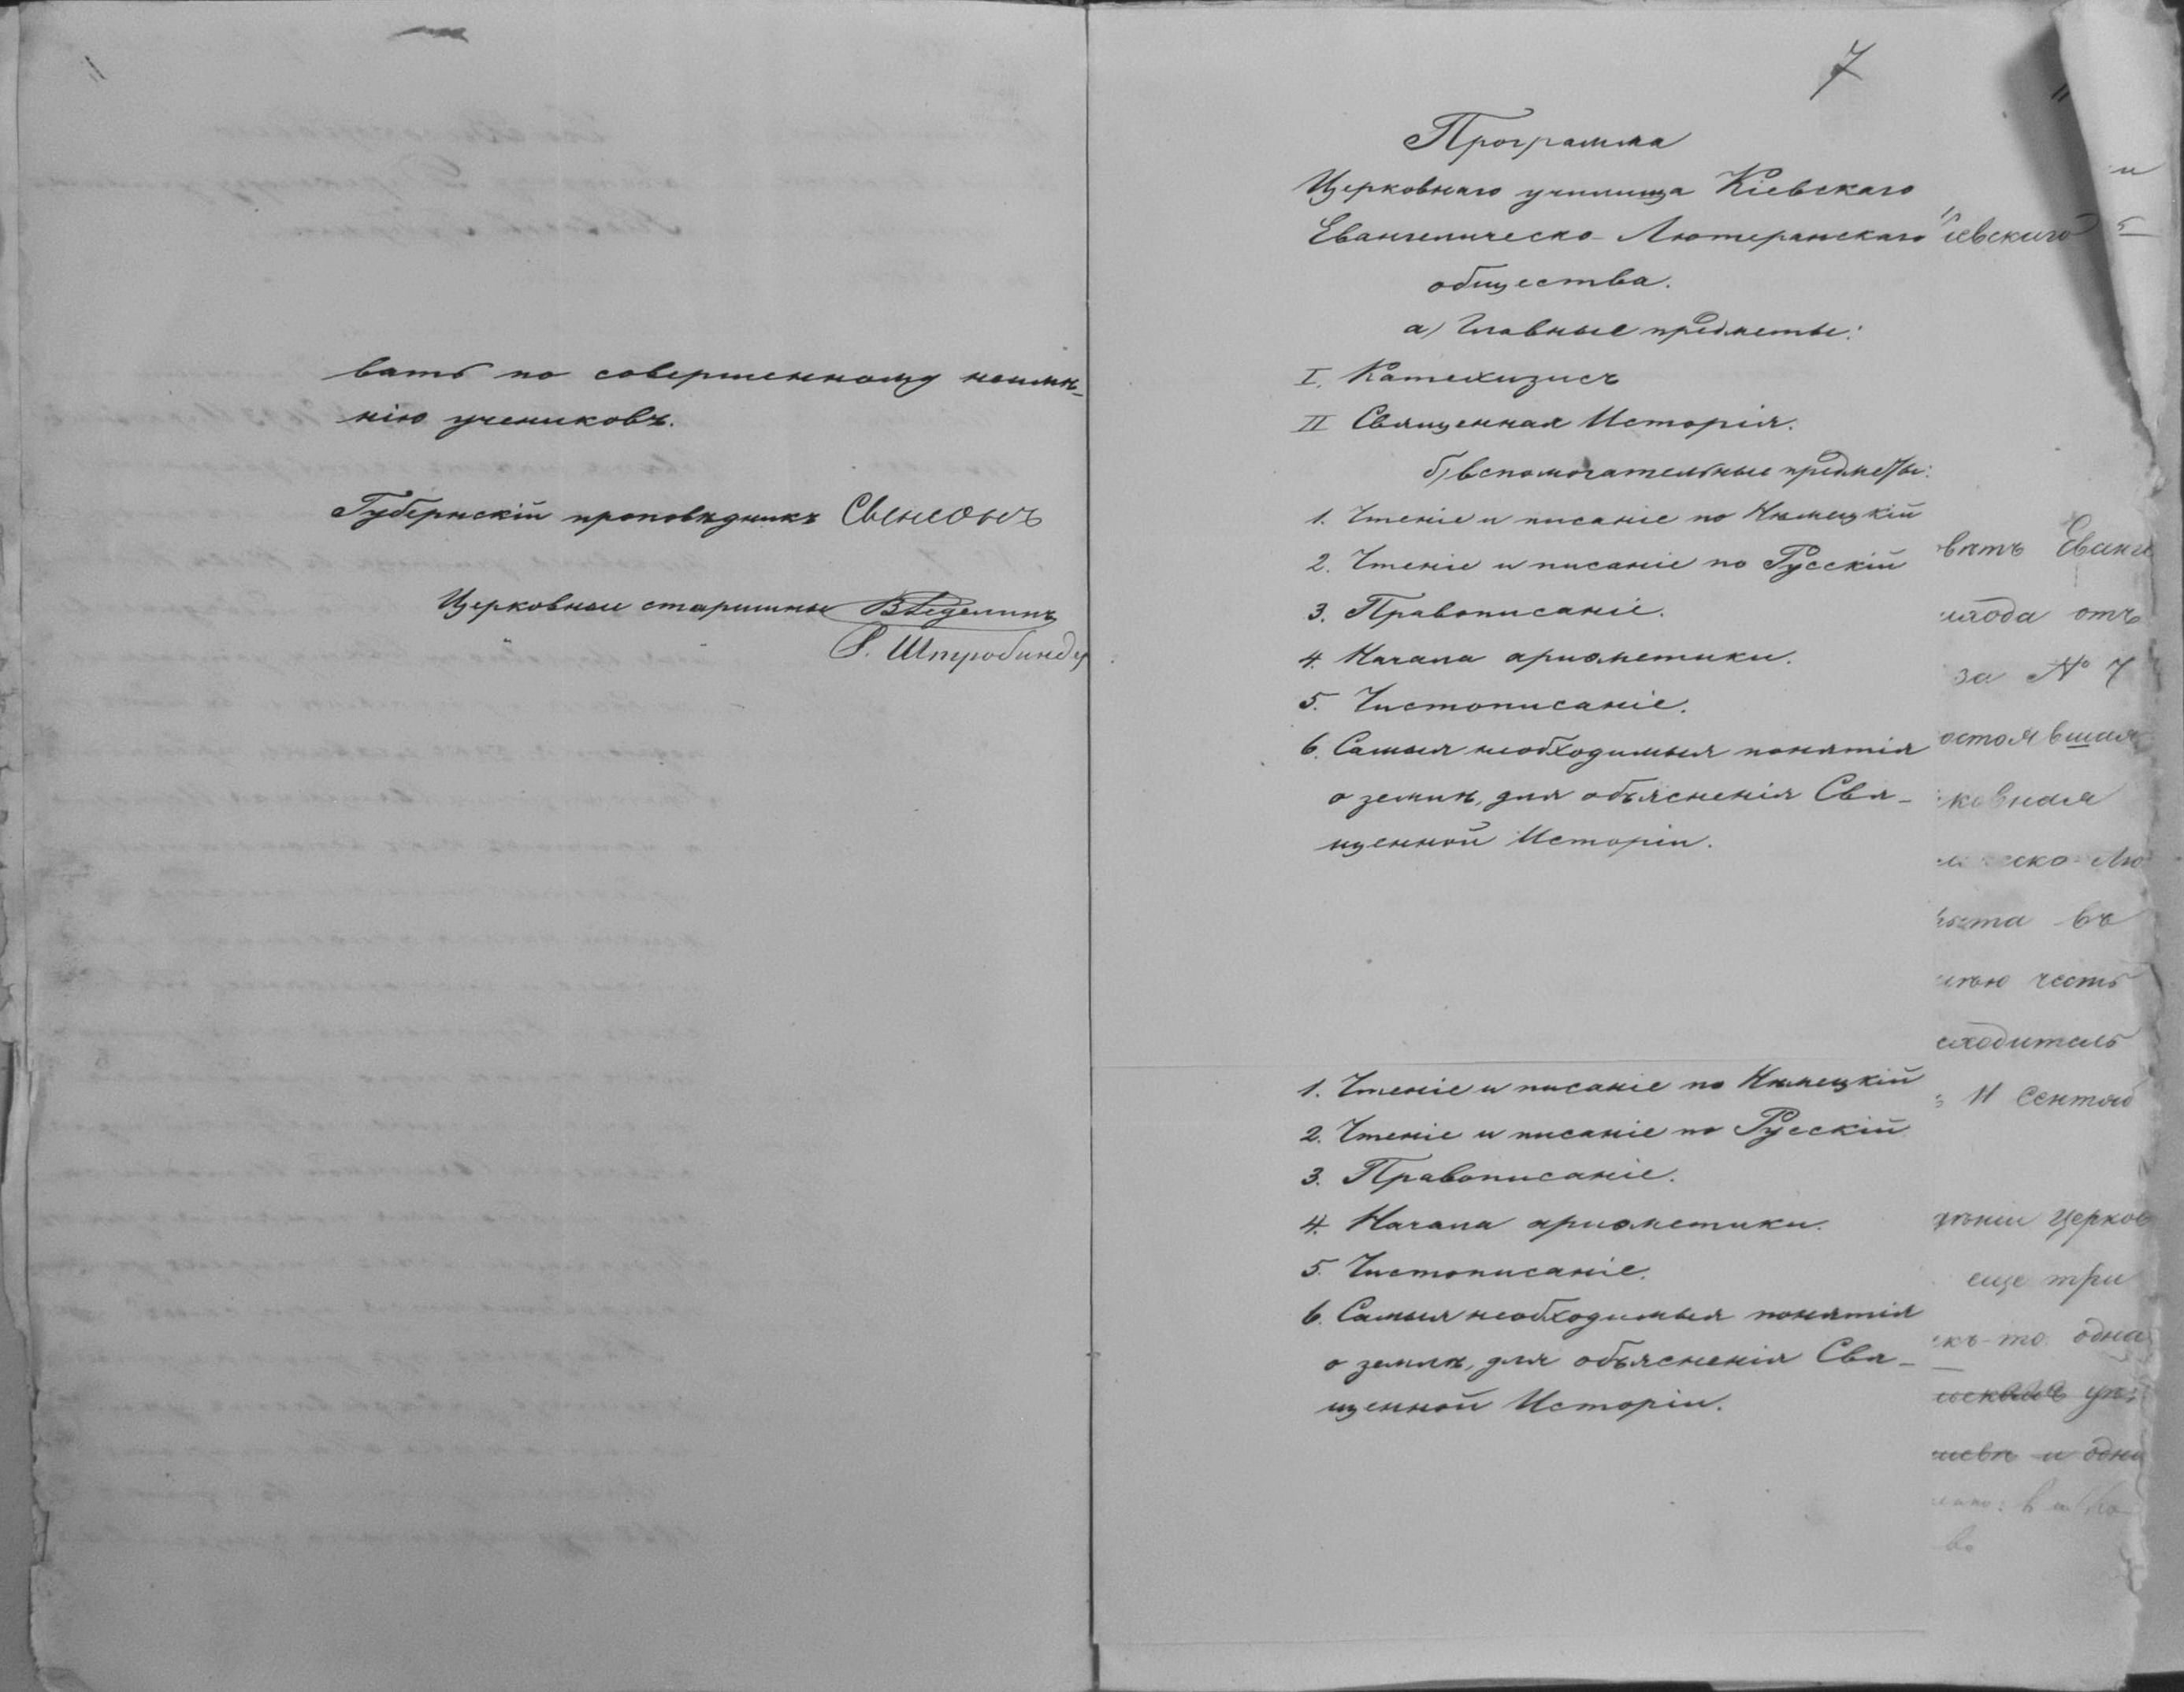 вать по совершенному неимѣ-
нію учениковъ.
Губернскій проповѣдникъ Свенсонъ
Церковные старшины
Штробиндер
7
Программа
Церковнаго училища Кіевскаго
Евангелическо-Лютеранскаго
общества.
а) Главные предметы:
I. Катехизисъ
II Священная Исторія.
б) вспомогательные предметы:
1. Чтеніе и писаніе по Нѣмецкій
2. Чтеніе и писаніе по Русскій
3. Правописаніе.
4. Начала ариѳметики.
5. Чистописаніе.
6. Самыя необходимыя понятія
о землѣ, для объясненія Свя-
щенной Исторіи.
1. Чтеніе и писаніе по Нѣмецкій
2. Чтеніе и писаніе по Русскій
3. Правописаніе.
4. Начала ариѳметики.
5. Чистописаніе.
6. Самыя необходимыя понятія
о землѣ, для объясненія Свя-
щенной Исторіи.
іевскаго
вать Еванге
отъ
за № 7
остоявшая
ковная
ско-Лю
въ
ѣю честь
сходитель
11 Сентяб
Церков
еще три
одна
и одни